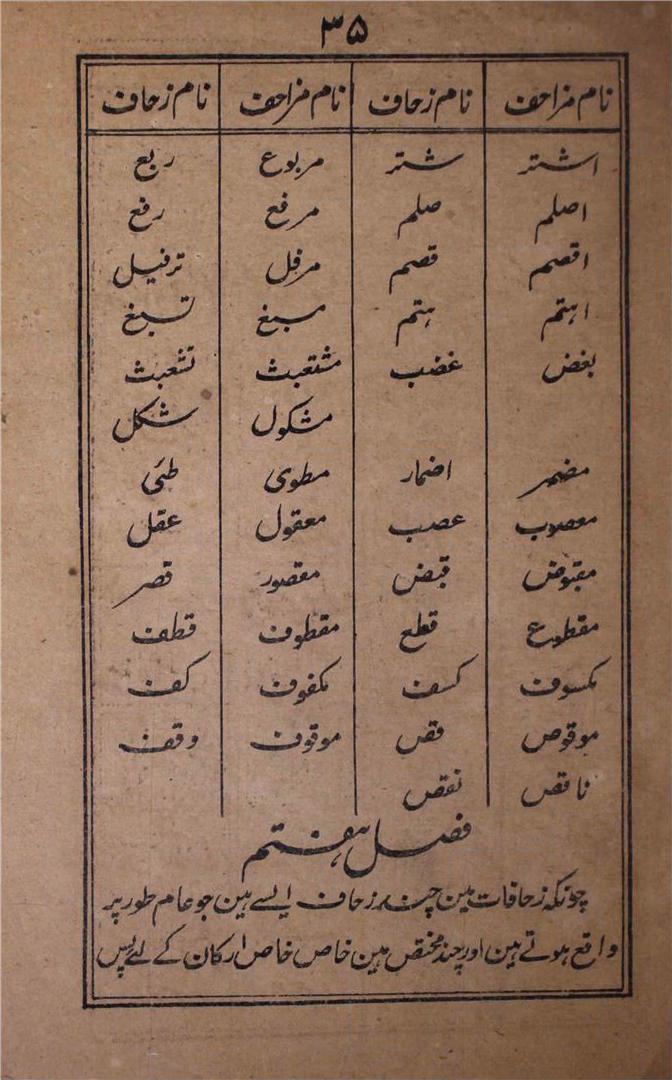 ۳۵
نام مزاحف نام زحاف نام مزاحف نام زحاف
اشتر شتر مربوع ربع
اصلم صلم مرفع رفع
اقصم قصم مرفل ترفیل
اہتم ہتم مسبغ تسبیغ
بغض غضب مشتعبث تشعبث
مشکول شکل
مضمر اضمار مطوی طئی
معصوب عصب معقول عقل
مقبوض قبض مقصور قصر
مقطوع قطع مقطوف قطف
مکسوف کسف مکفوف کف
موقوص قص موقوف وقف
ناقص نقص
فصل ہفتم
چونکہ زحافات مین چند زحاف ایسے ہین جو عام طور پر
واقع ہوتے ہین اور چند مختص ہین خاص خاص ارکان کے لئے پس